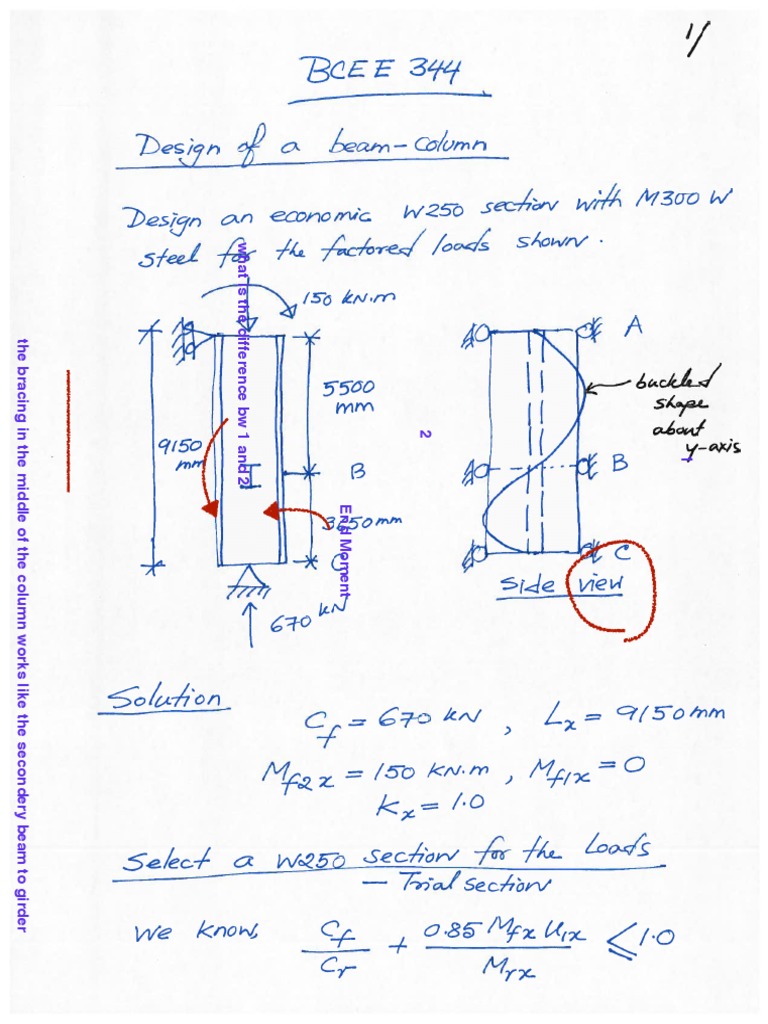 1/
BCEE 344
Design of a beam-column
Design an economic W250 section with M300 W
steel for the factored loads shown.
150 kN.m
what is the difference bw 1 and 2
5500
mm
9150
mm
B
End Moment
670 kN
2
A
buckled
shape
about
y-axis
B
C
Side view
the bracing in the middle of the column works like the secondery beam to girder
Solution
Cf = 670 kN , Lx = 9150mm
Mf2x = 150 kN.m , Mf1x = 0
Kx = 1.0
Select a W250 section for the Loads
— Trial section
We know, Cf/Cr + 0.85 Mfx U1x/Mrx ≤ 1.0